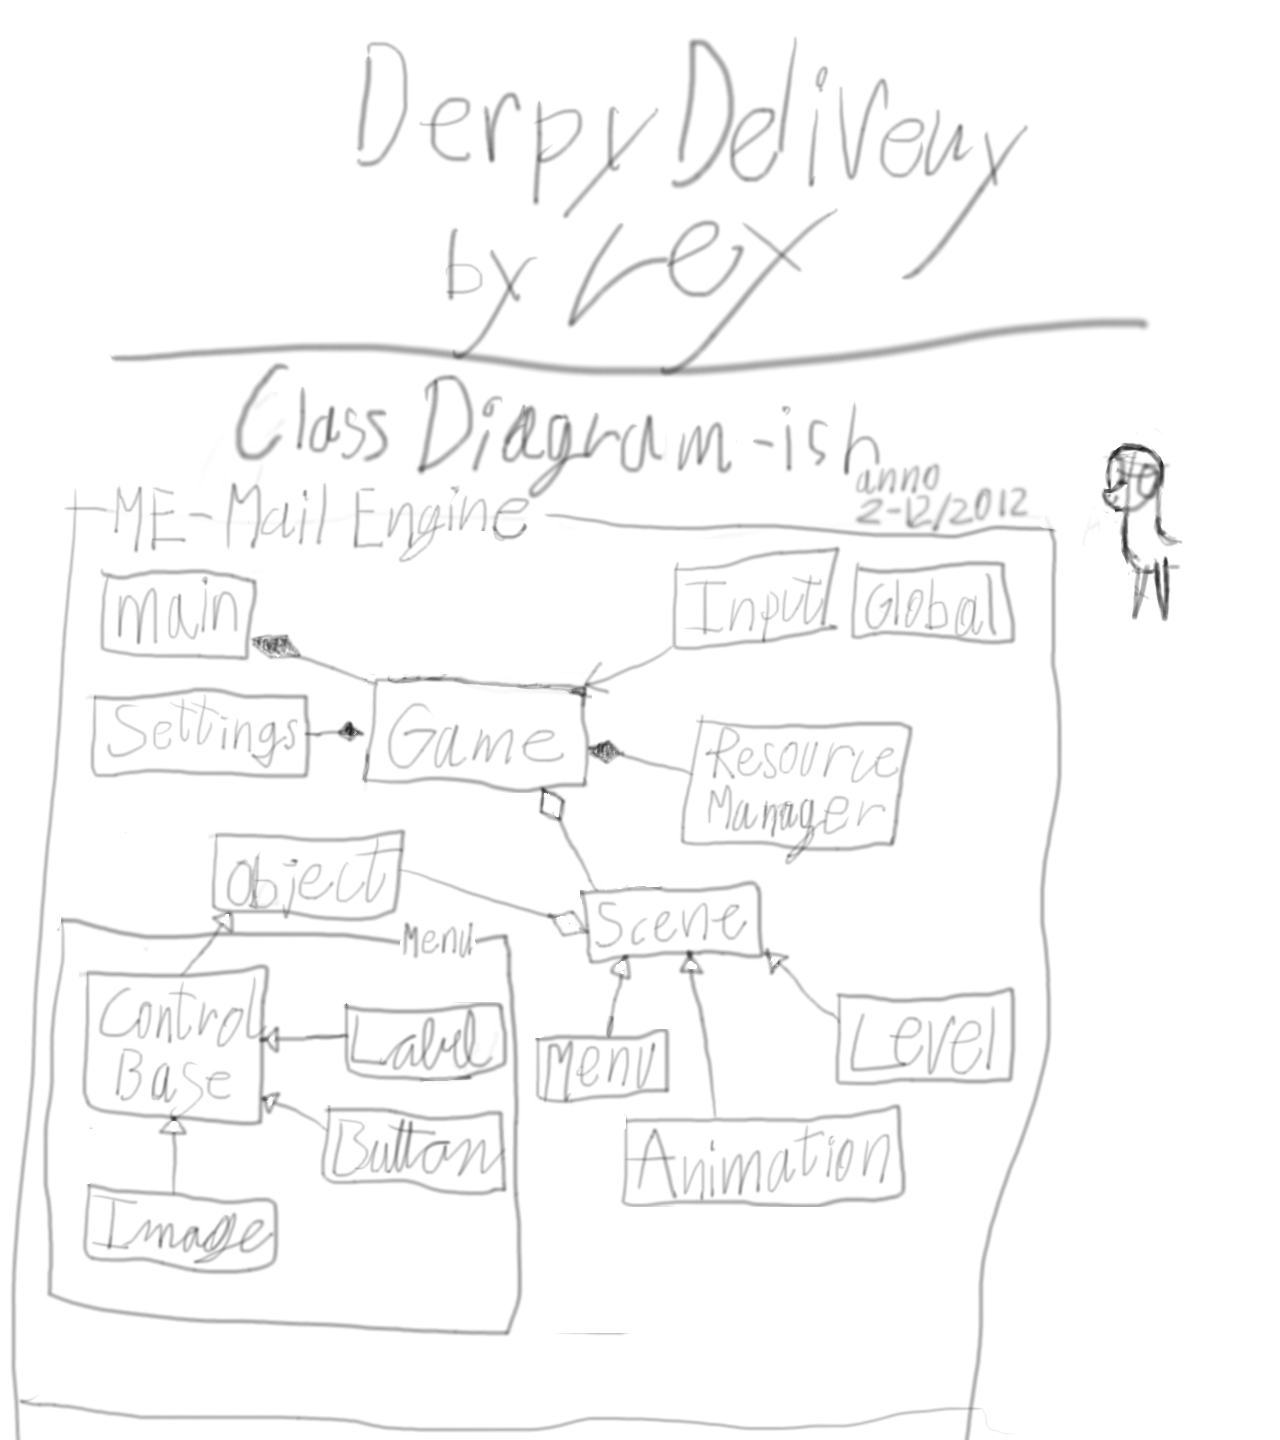 Derpy Delivery
by Lex
Class Diagram-ish
anno
2-12/2012
ME-Mail Engine
main
Input
Global
Settings
Game
Resource
Manager
Object
Scene
Menu
Control
Base
Label
Menu
Level
Button
Animation
Image